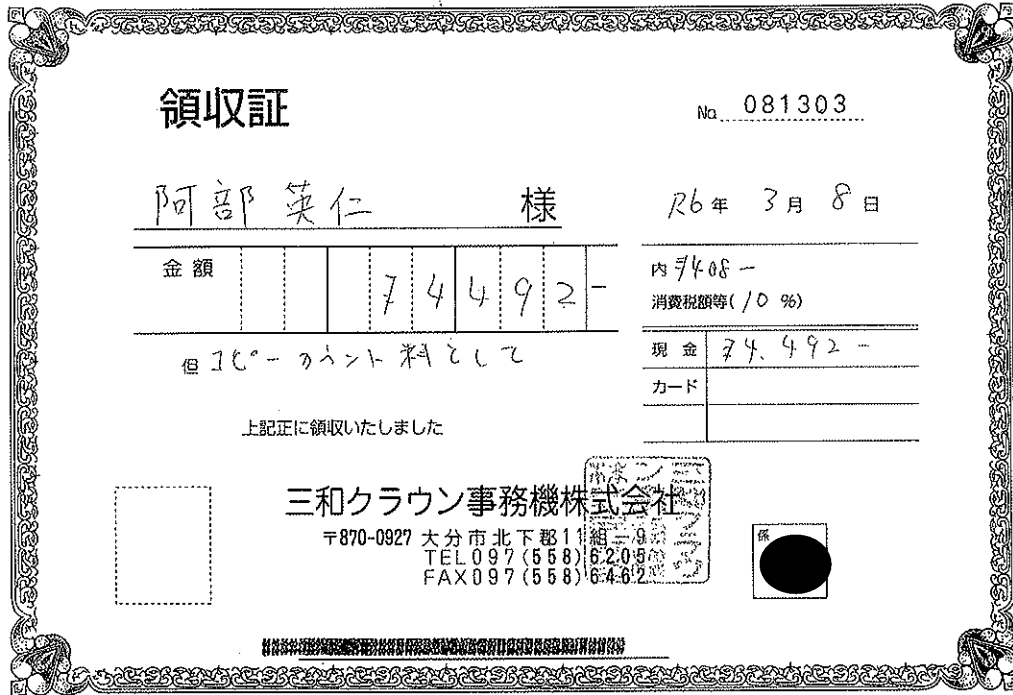 領収証
No. 081303
阿部 英仁 様
R6年 3月 8日
金額 74492-
内 7408-
消費税額等(10%)
但 コピーカウント料として
現金 74,492-
カード
上記正に領収いたしました
三和クラウン事務機株式会社
〒870-0927 大分市北下郡11組-9
TEL097(558)6205
FAX097(558)6462
係